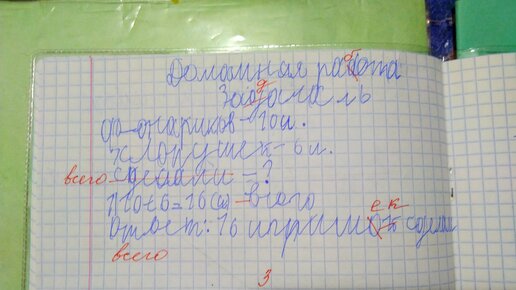 Домашная работа
Задача
фонариков - 10 и.
хлорушек - 6 и.
всего сделали - ?
1) 10+6=16(и) - всего
Ответ: 16 игрушек сделали
всего
3